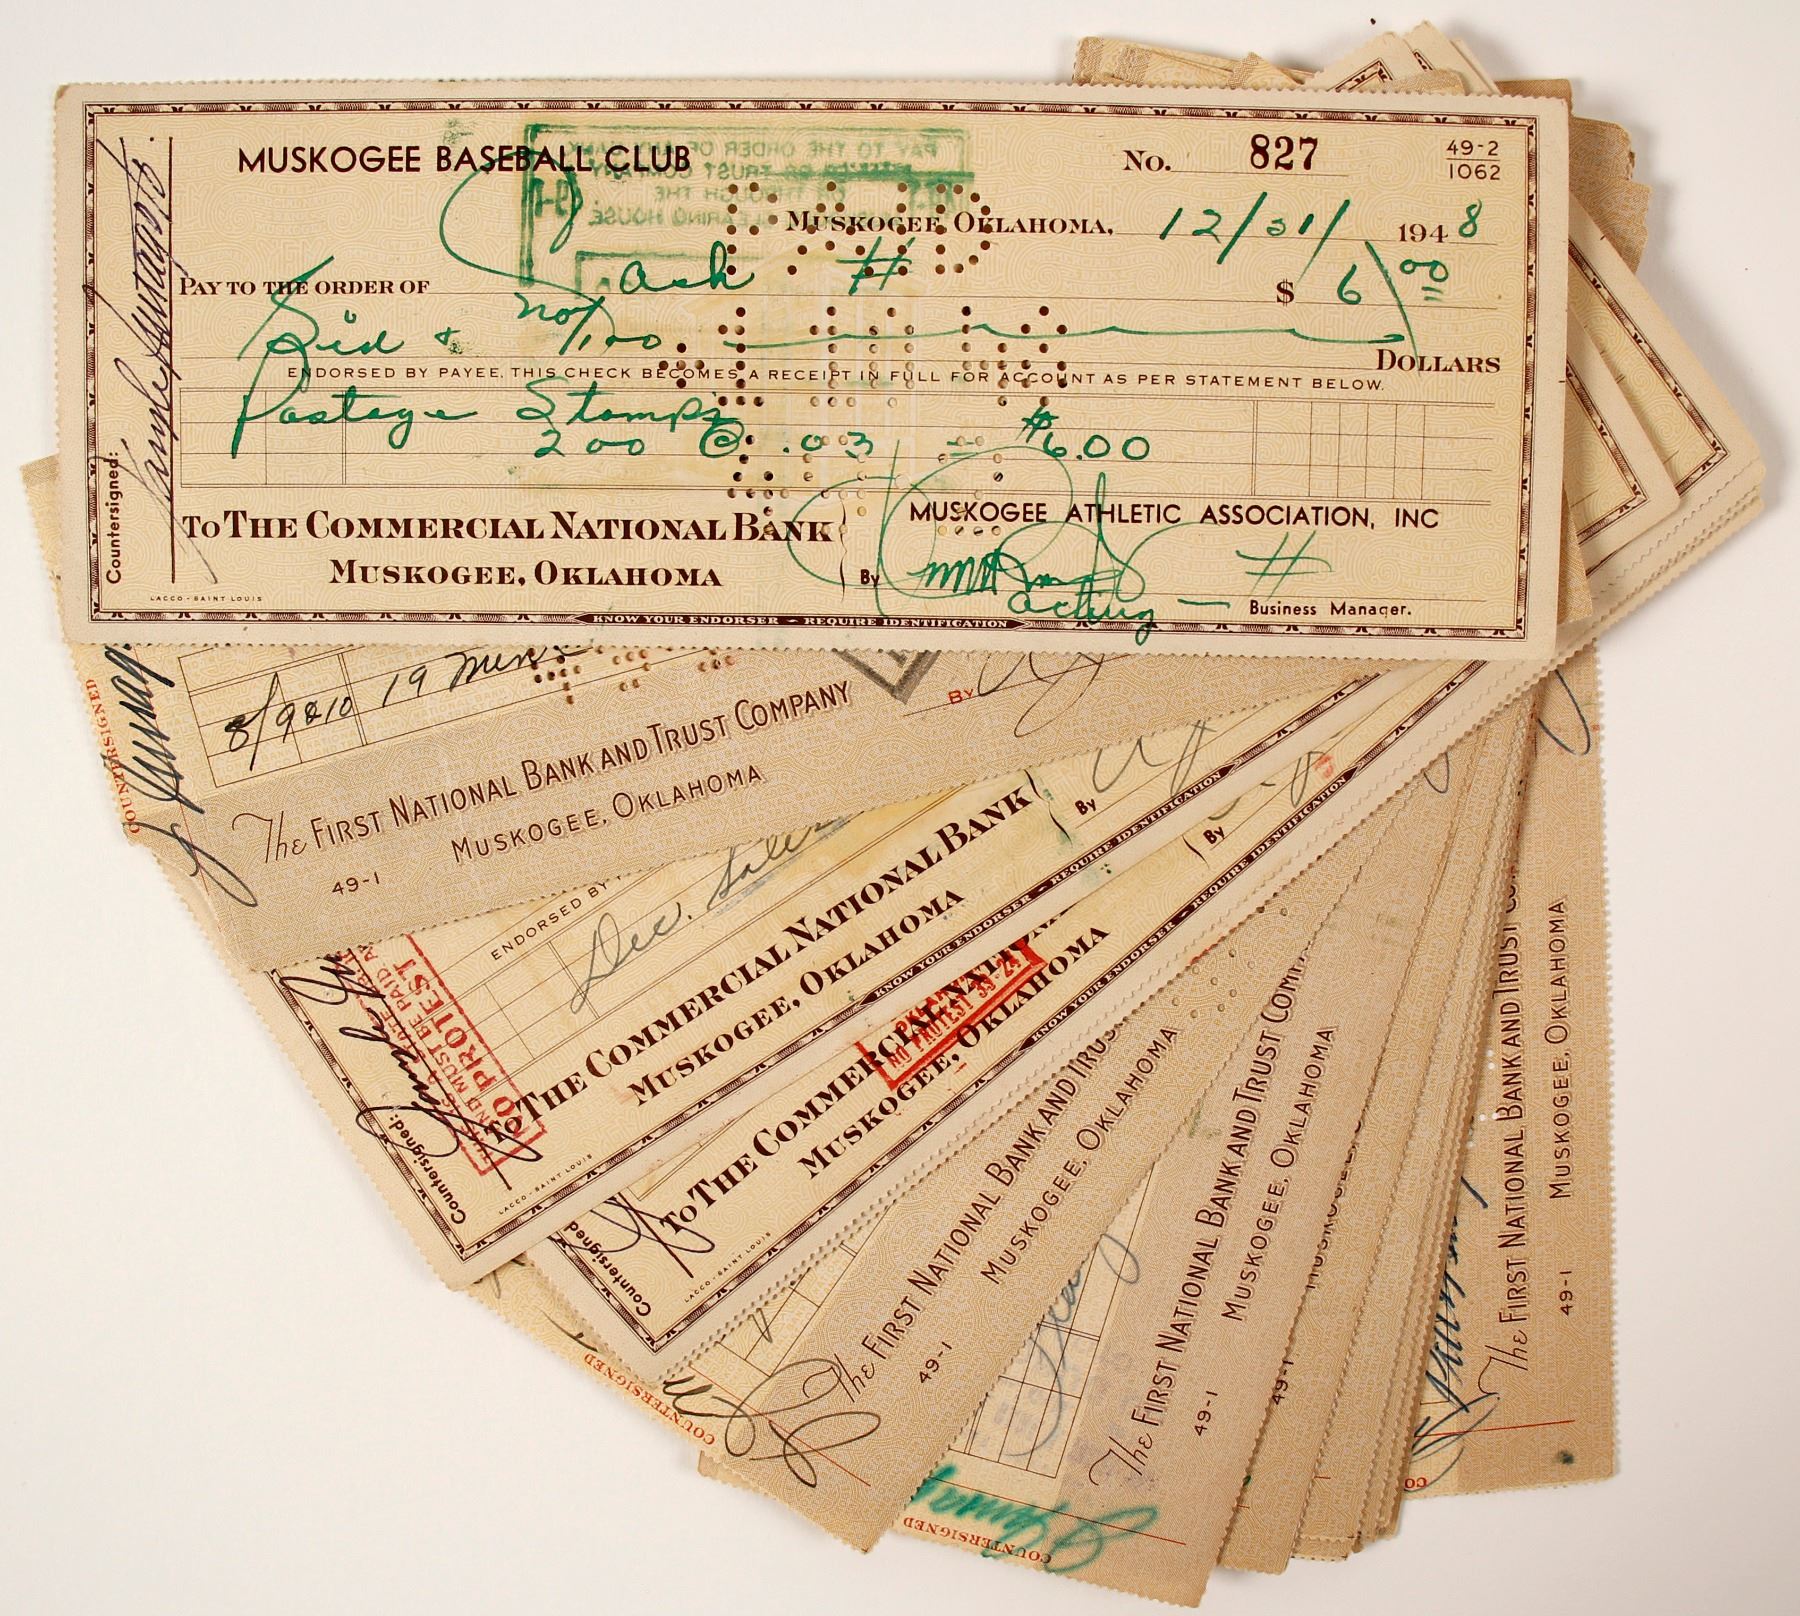 MUSKOGEE BASEBALL CLUB
No. 827
49-2
1062
MUSKOGEE, OKLAHOMA, 12/31/ 1948
PAY TO THE ORDER OF Cash $ 6 00
Six & no/100 DOLLARS
ENDORSED BY PAYEE, THIS CHECK BECOMES A RECEIPT IN FULL FOR ACCOUNT AS PER STATEMENT BELOW.
Postage Stamps
200 @ .03 = $6.00
TO THE COMMERCIAL NATIONAL BANK
MUSKOGEE, OKLAHOMA
LACCO-SAINT LOUIS
MUSKOGEE ATHLETIC ASSOCIATION, INC
By
Acting — Business Manager.
KNOW YOUR ENDORSER - REQUIRE IDENTIFICATION
Countersigned:
8/9&10 19 men
By
The FIRST NATIONAL BANK AND TRUST COMPANY
MUSKOGEE, OKLAHOMA
49-1
COUNTERSIGNED
ENDORSED BY
Dec.
TO THE COMMERCIAL NATIONAL BANK
MUSKOGEE, OKLAHOMA
By
KNOW YOUR ENDORSER - REQUIRE IDENTIFICATION
LACCO-SAINT LOUIS
Countersigned:
NO PROTEST
TO THE COMMERCIAL NATIONAL
MUSKOGEE, OKLAHOMA
By
KNOW YOUR ENDORSER - REQUIRE IDENTIFICATION
NO PROTEST
LACCO-SAINT LOUIS
Countersigned
The FIRST NATIONAL BANK AND TRUS
MUSKOGEE, OKLAHOMA
49-1
COUNTERSIGNED
The FIRST NATIONAL BANK AND TRUST COM
MUSKOGEE, OKLAHOMA
49-1
COUNTERSIGNED
49-1
The FIRST NATIONAL BANK AND TRUST CO
MUSKOGEE, OKLAHOMA
49-1
CO